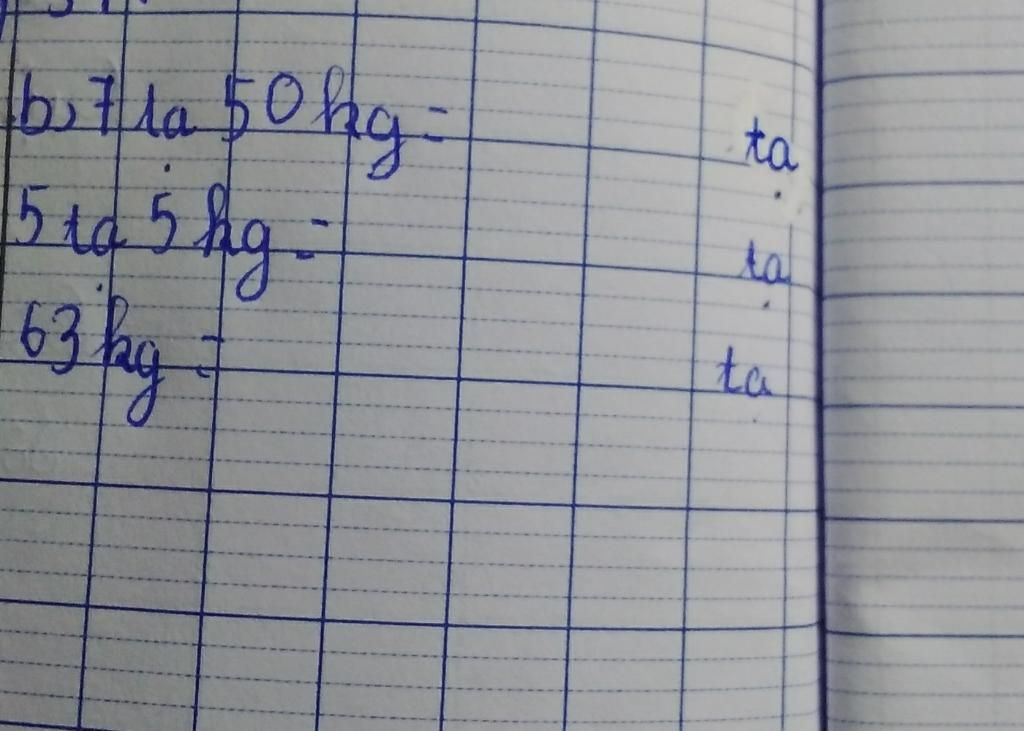 b, 7 tạ 50 kg = tạ
5 tạ 5 kg = tạ
63 kg = tạ